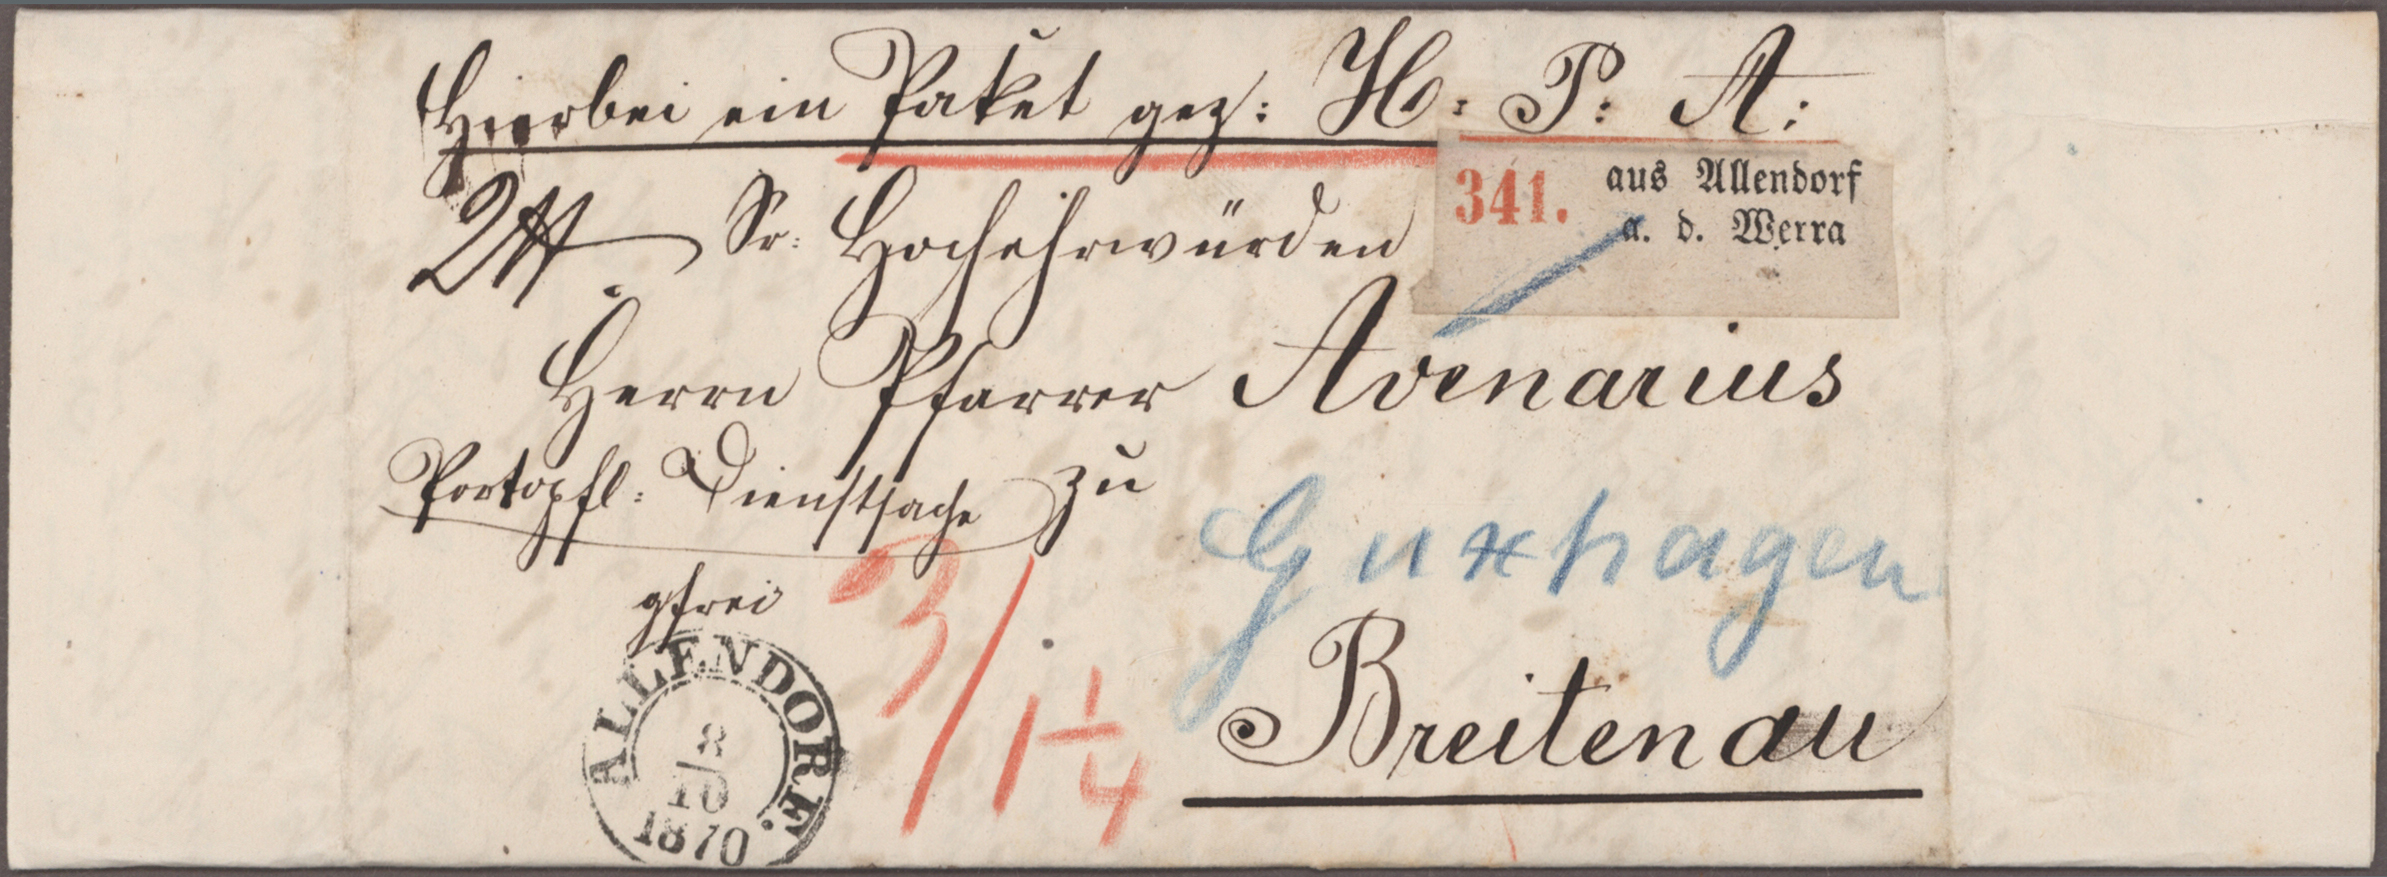 Hierbei ein Paket gez: H: P: A:
341. aus Allendorf
a. d. Werra
Sr: Hochehrwürden
Herrn Pfarrer Avenarius
Portopfl: Dienstsache zu
Guxhagen
frei
3/ 1 1/4
Breitenau
ALLENDORF.
8/10
1870